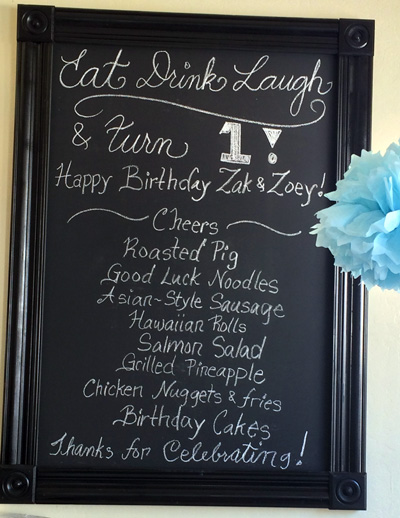 Eat Drink Laugh
& Turn 1!
Happy Birthday Zak & Zoey!
Cheers
Roasted Pig
Good Luck Noodles
Asian-Style Sausage
Hawaiian Rolls
Salmon Salad
Grilled Pineapple
Chicken Nuggets & fries
Birthday Cakes
Thanks for Celebrating!